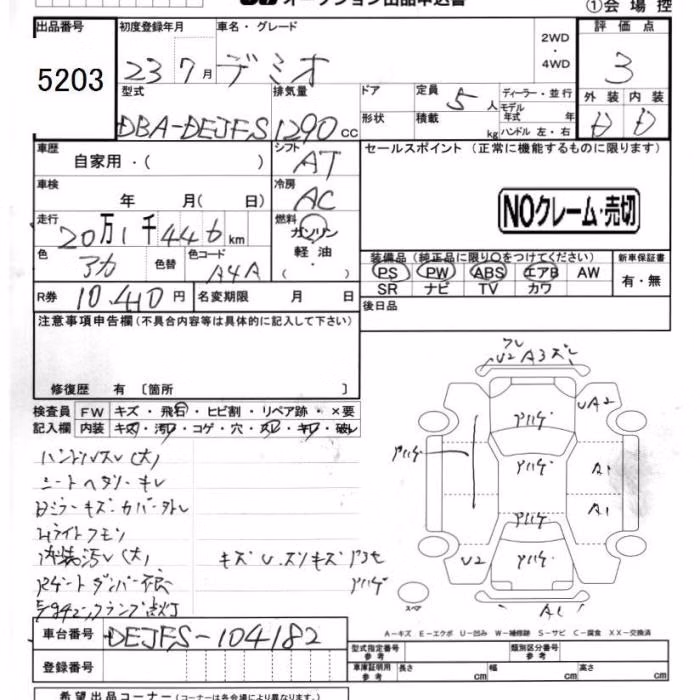 オークション出品申込書
①会場控
出品番号
5203
初度登録年月
23 7月
車名・グレード
デミオ
2WD
・
4WD
評価点
3
型式
DBA-DEJFS
排気量
1290cc
ドア
形状
定員
5人
積載
kg
ディーラー・並行
モデル年式 年
ハンドル 左・右
外装 内装
D D
車歴
自家用・( )
シフト
AT
セールスポイント (正常に機能するものに限ります)
車検
年 月( 日)
冷房
AC
NOクレーム・売切
走行
20万1千446km
燃料
ガソリン
軽油
( ・ )
色
アカ
色替
色コード
A4A
装備品 (純正品に限り○をつけてください)
PS PW ABS エアB AW
SR ナビ TV カワ
新車保証書
有・無
R券 10,410円
名変期限 月 日
後日品
注意事項申告欄 (不具合内容等は具体的に記入して下さい)
修復歴 有 〔箇所 〕
検査員記入欄
FW キズ・飛石・ヒビ割・リペア跡・×要
内装 キズ・汚レ・コゲ・穴・スレ・キレ・破レ
ハンドルスレ(大)
シートヘタリ・キレ
ライトクモリ
内装汚レ(大)
キズU.スリキズ
アハゲ
U2 A3
アハゲ
UA2
アハゲ
アハゲ
A1
アハゲ
A1
アハゲ
U2
スペア
A1
A-キズ E-エクボ U-凹み W-補修跡 S-サビ C-腐食 XX-交換済
車台番号
DEJFS-104182
登録番号
型式指定番号 参考
類別区分番号 参考
車庫証明用 参考
長さ cm
幅 cm
高さ cm
希望出品コーナー (コーナーは各会場により異なります。)